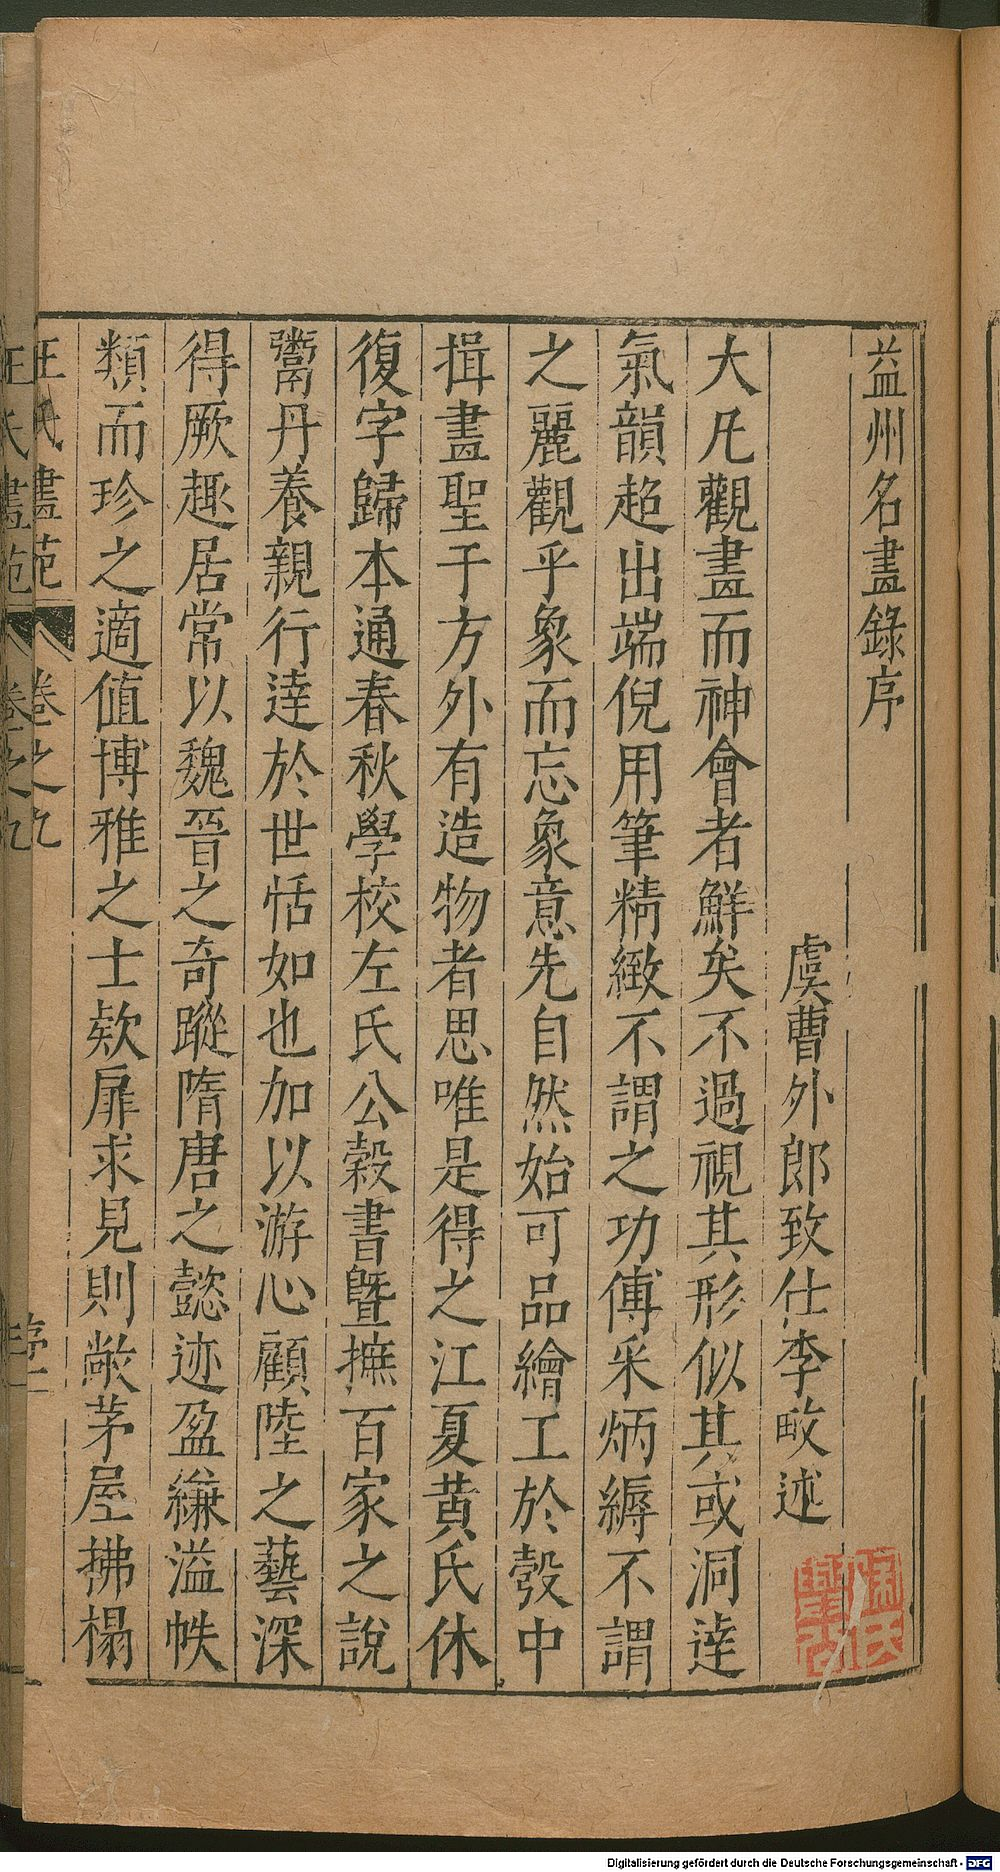 益州名畫錄序
虞曹外郎致仕李畋述
大凡觀畫而神會者鮮矣不過視其形似其或洞達
氣韻超出端倪用筆精緻不謂之功傅采炳縟不謂
之麗觀乎象而忘象意先自然始可品繪工於彀中
揖畫聖于方外有造物者思唯是得之江夏黃氏休
復字歸本通春秋學校左氏公穀書曁摭百家之說
鬻丹養親行達於世恬如也加以游心顧陸之藝深
得厥趣居常以魏晉之奇蹤隋唐之懿迹盈縑溢帙
類而珍之適值博雅之士欵扉求見則敞茅屋拂榻
汪氏畫苑 卷之九
Digitalisierung gefördert durch die Deutsche Forschungsgemeinschaft - DFG